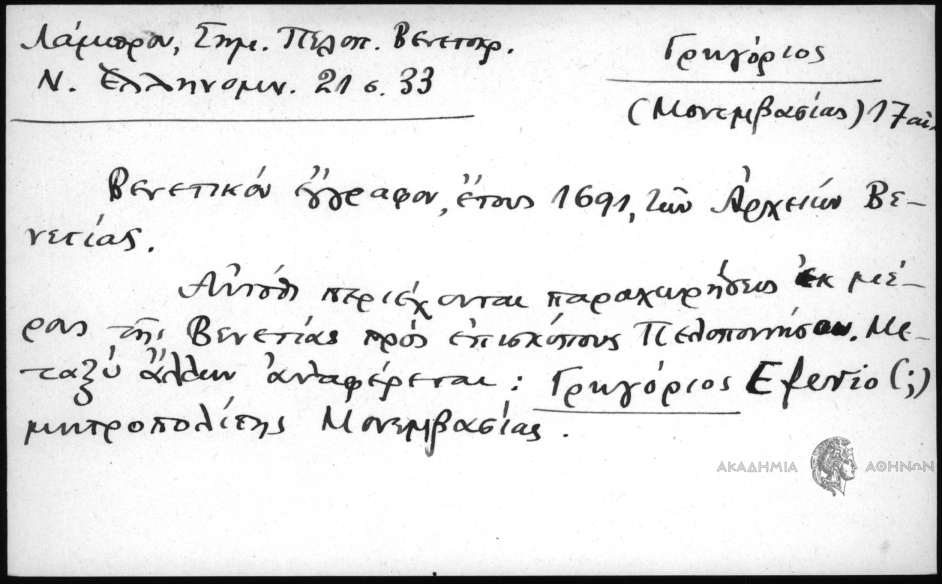 Λάμπρου, Σημ. Πελοπ. Βενετοκρ.
Ν. Ἑλληνομν. 21 σ. 33
Γρηγόριος
(Μονεμβασίας) 17 αἰ.
Βενετικόν ἔγγραφον, ἔτους 1691, τῶν Ἀρχείων Βε-
νετίας.
Αὐτόθι περιέχονται παραχωρήσεις ἐκ μέ-
ρους τῆς Βενετίας πρός ἐπισκόπους Πελοποννήσου. Με-
ταξύ ἄλλων ἀναφέρεται: Γρηγόριος Efenio (;)
μητροπολίτης Μονεμβασίας.
ΑΚΑΔΗΜΙΑ ΑΘΗΝΩΝ